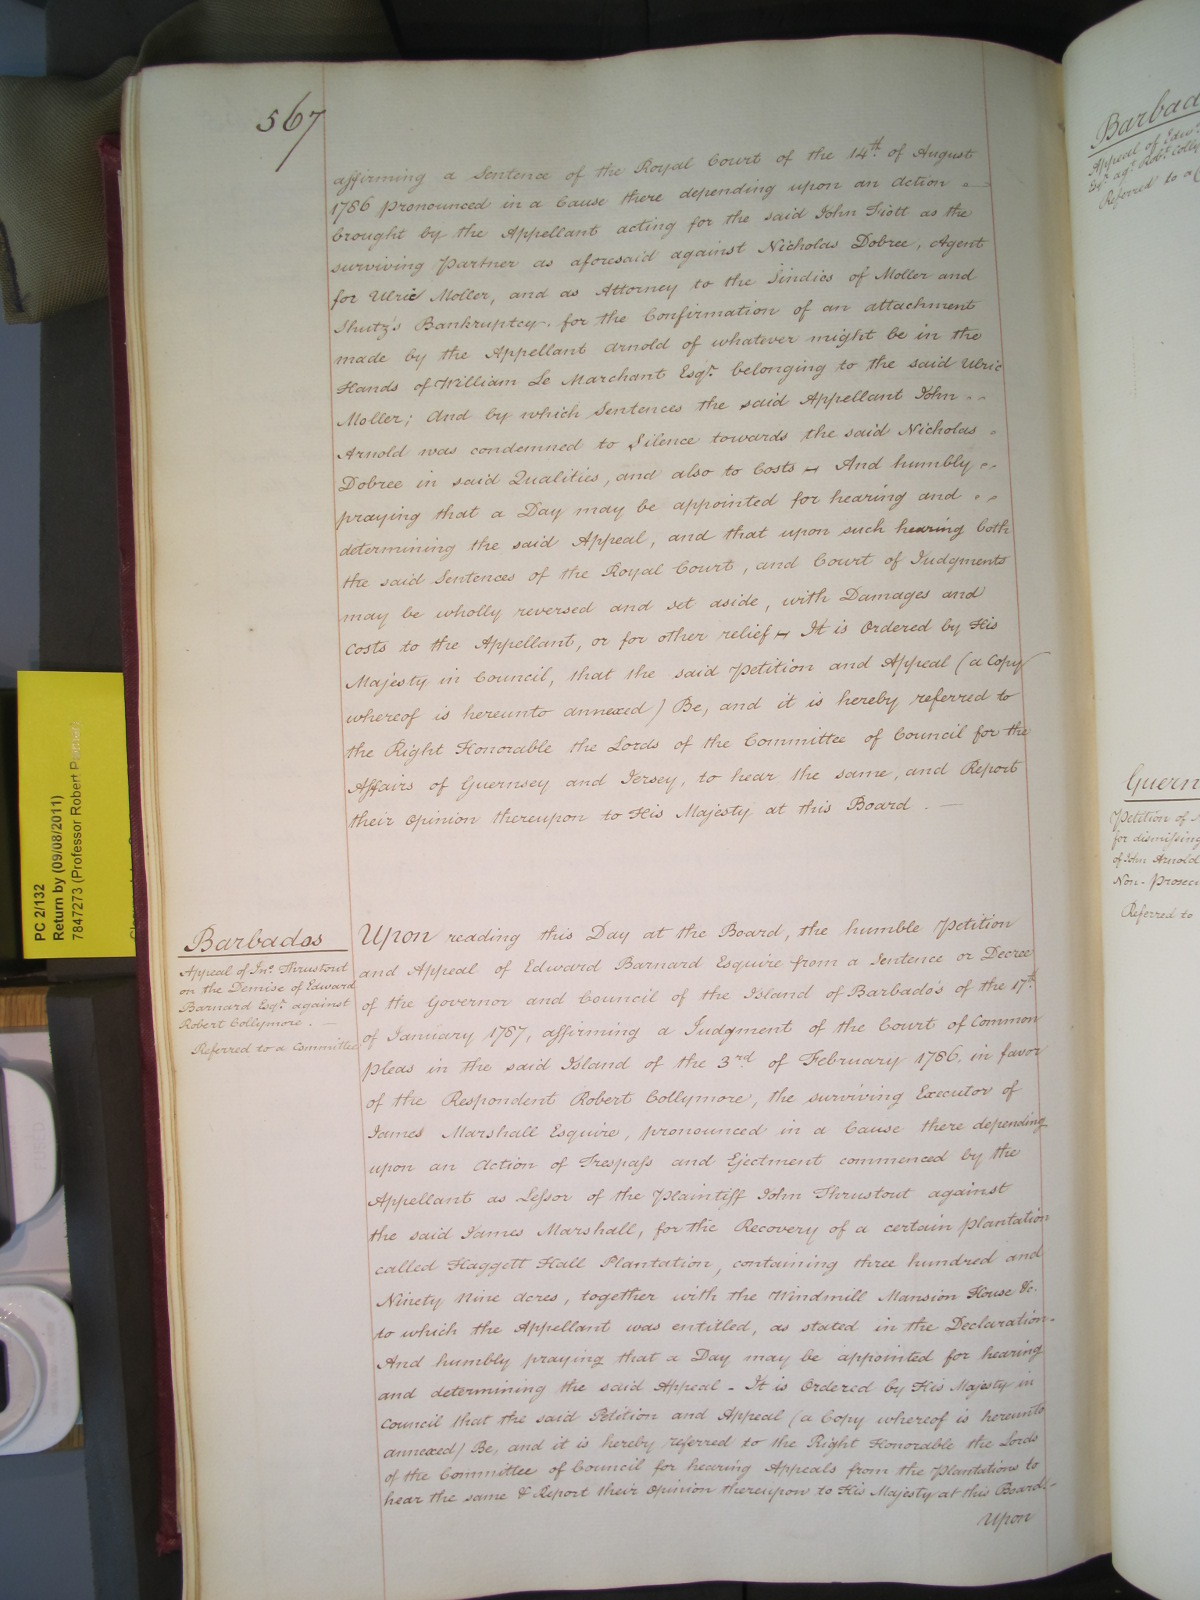 567
affirming a Sentence of the Royal Court of the 14th. of August
1786 pronounced in a Cause there depending upon an Action
brought by the Appellant acting for the said John Tiott as the
surviving Partner as aforesaid against Nicholas Dobree, Agent
for Ulric Moller, and as Attorney to the Sindics of Moller and
Shutz's Bankruptcy, for the Confirmation of an attachment
made by the Appellant Arnold of whatever might be in the
Hands of William Le Marchant Esqr. belonging to the said Ulric
Moller; And by which Sentences the said Appellant John
Arnold was condemned to Silence towards the said Nicholas
Dobree in said Qualities, and also to Costs - And humbly
praying that a Day may be appointed for hearing and
determining the said Appeal, and that upon such hearing both
the said Sentences of the Royal Court, and Court of Judgments
may be wholly reversed and set aside, with Damages and
Costs to the Appellant, or for other relief - It is Ordered by His
Majesty in Council, that the said Petition and Appeal (a Copy
whereof is hereunto annexed) Be, and it is hereby referred to
the Right Honorable the Lords of the Committee of Council for the
Affairs of Guernsey and Jersey, to hear the same, and Report
their Opinion thereupon to His Majesty at this Board.
Barbados
Appeal of Jno. Thrustout
on the Demise of Edward
Barnard Esqr. against
Robert Collymore.
Referred to a Committee
Upon reading this Day at the Board, the humble Petition
and Appeal of Edward Barnard Esquire from a Sentence or Decree
of the Governor and Council of the Island of Barbado's of the 17th.
of January 1787, affirming a Judgment of the Court of Common
pleas in the said Island of the 3rd. of February 1786. in favor
of the Respondent Robert Collymore, the surviving Executor of
James Marshall Esquire, pronounced in a Cause there depending
upon an Action of Trespass and Ejectment commenced by the
Appellant as Lessor of the Plaintiff John Thrustout against
the said James Marshall, for the Recovery of a certain plantation
called Haggett Hall Plantation, containing three hundred and
Ninety Nine Acres, together with the Windmill Mansion House &c.
to which the Appellant was entitled, as stated in the Declaration -
And humbly praying that a Day may be appointed for hearing
and determining the said Appeal - It is Ordered by His Majesty in
Council that the said Petition and Appeal (a Copy whereof is hereunto
annexed) Be, and it is hereby referred to the Right Honorable the Lords
of the Committee of Council for hearing Appeals from the Plantations to
hear the same & Report their Opinion thereupon to His Majesty at this Board. -
Upon
PC 2/132
Return by (09/08/2011)
7847273 (Professor Robert
Barbad
Appeal of Edwd.
Esqr. agt. Robt. Colly
Referred to a C
Guern
Petition of N
for dismissing
of John Arnold
Non-Prosec
Referred to